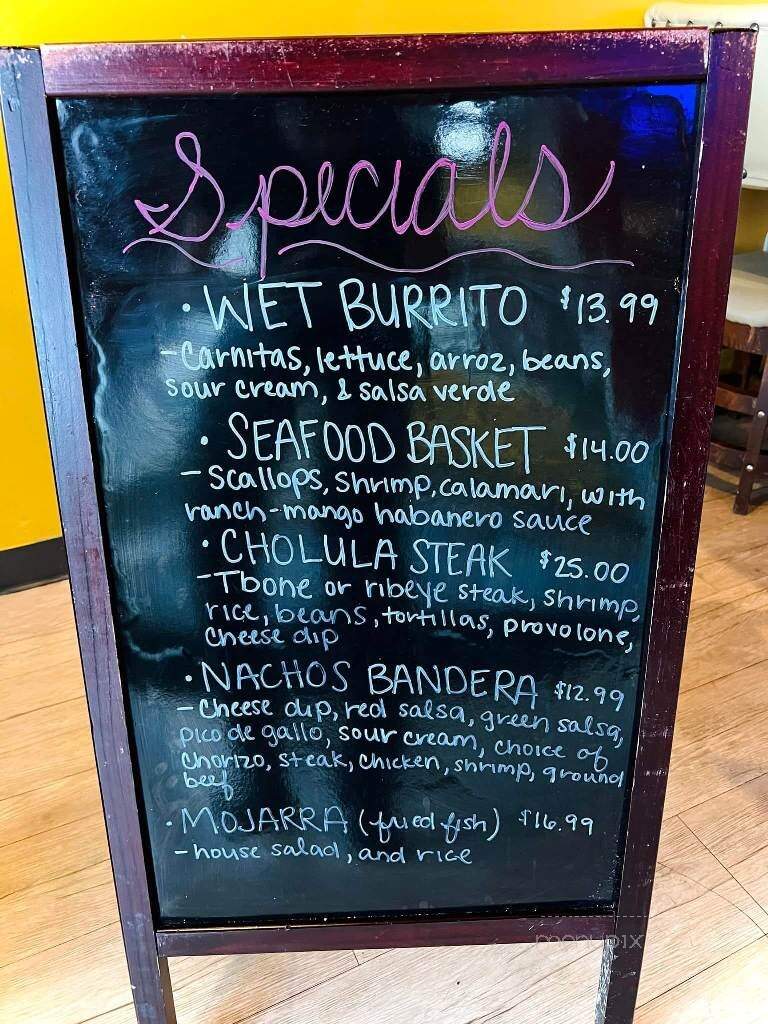 Specials
• WET BURRITO $13.99
- Carnitas, lettuce, arroz, beans,
sour cream, & salsa verde
• SEAFOOD BASKET $14.00
- Scallops, shrimp, calamari, with
ranch-mango habanero sauce
• CHOLULA STEAK $25.00
- Tbone or ribeye steak, shrimp,
rice, beans, tortillas, provolone,
cheese dip
• NACHOS BANDERA $12.99
- Cheese dip, red salsa, green salsa,
pico de gallo, sour cream, choice of
chorizo, steak, chicken, shrimp, ground
beef
• MOJARRA (fried fish) $16.99
- house salad, and rice